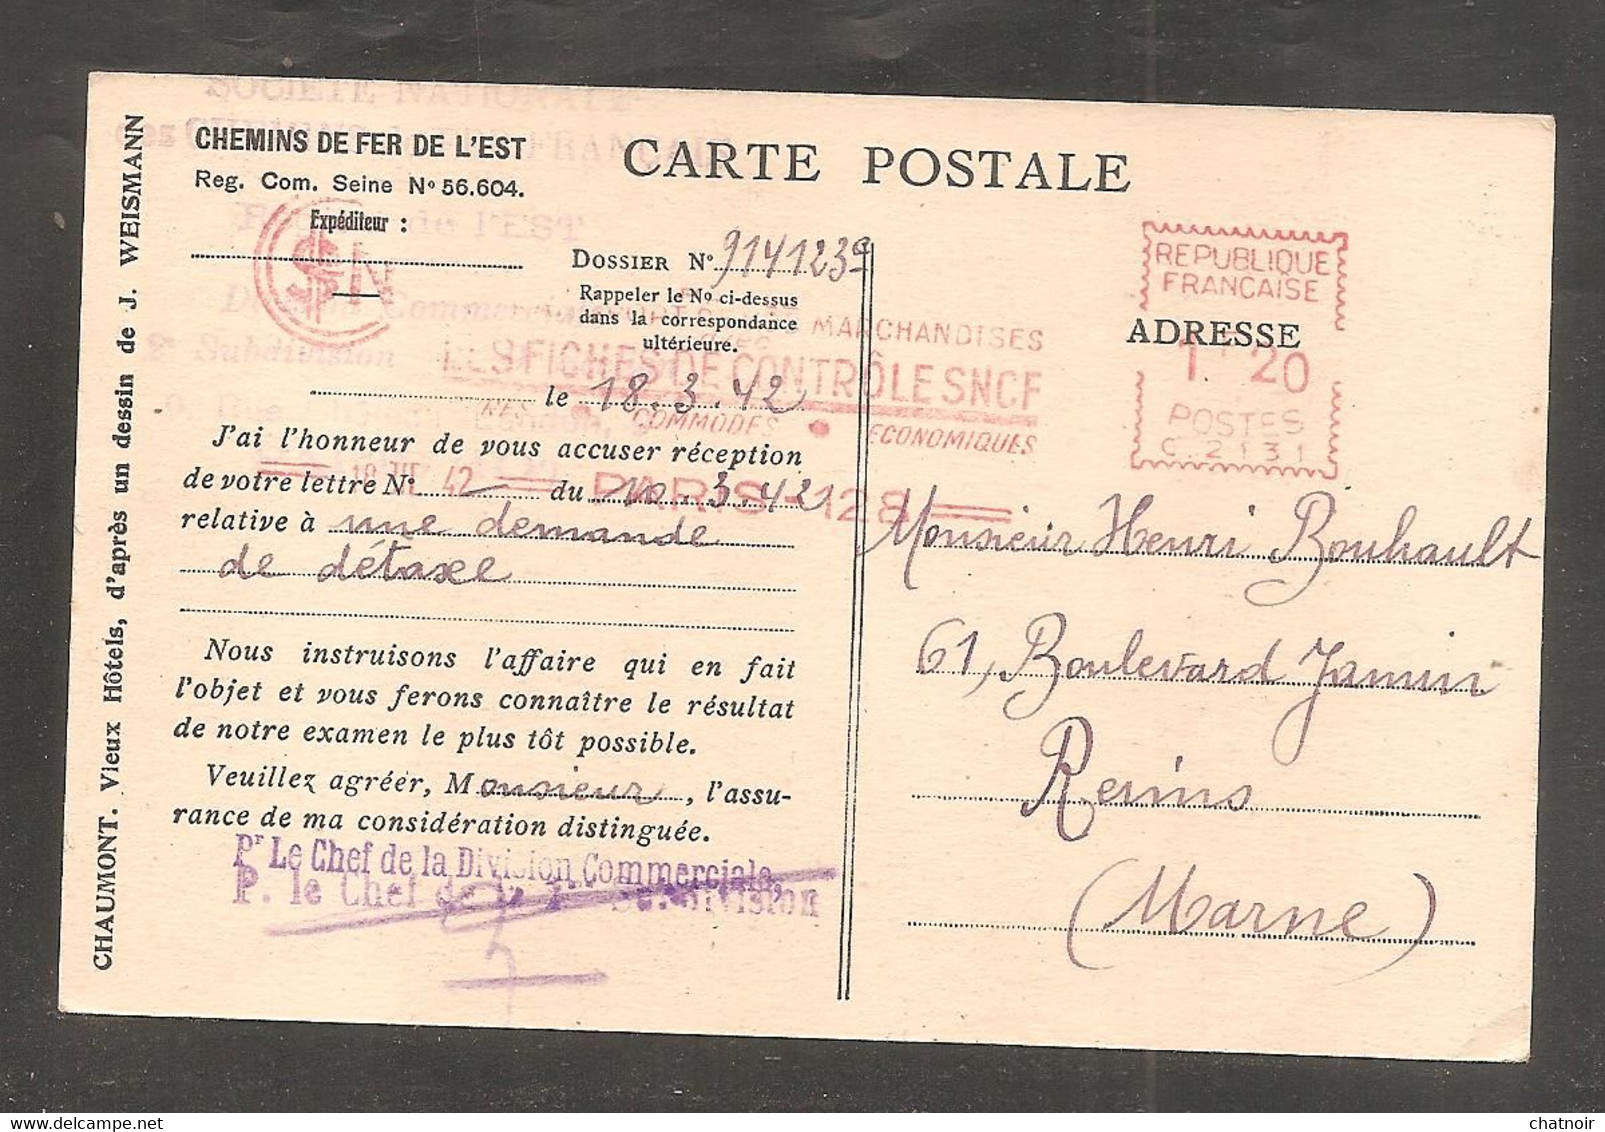 SOCIÉTÉ NATIONALE
des CHEMINS DE FER FRANÇAIS
CHEMINS DE FER DE L'EST
Reg. Com. Seine N° 56.604.
CARTE POSTALE
de l'EST
Expéditeur :
DOSSIER N° 9141239
Rappeler le N° ci-dessus
dans la correspondance
ultérieure.
Division Commerciale
2e Subdivision
MARCHANDISES
LES FICHES DE CONTRÔLE SNCF
COMMODES • ECONOMIQUES
PARIS-128
REPUBLIQUE
FRANCAISE
1F20
POSTES
C.2131
ADRESSE
le 18.3.42
J'ai l'honneur de vous accuser réception
de votre lettre N° — du 10.3.42
relative à une demande
de détaxe
Nous instruisons l'affaire qui en fait
l'objet et vous ferons connaître le résultat
de notre examen le plus tôt possible.
Veuillez agréer, Monsieur, l'assu-
rance de ma considération distinguée.
Pr Le Chef de la Division Commerciale,
P. le Chef de la Subdivision
Monsieur Henri Bouhault
61, Boulevard Jamin
Reims
(Marne)
CHAUMONT. Vieux Hôtels, d'après un dessin de J. WEISMANN
chatnoir